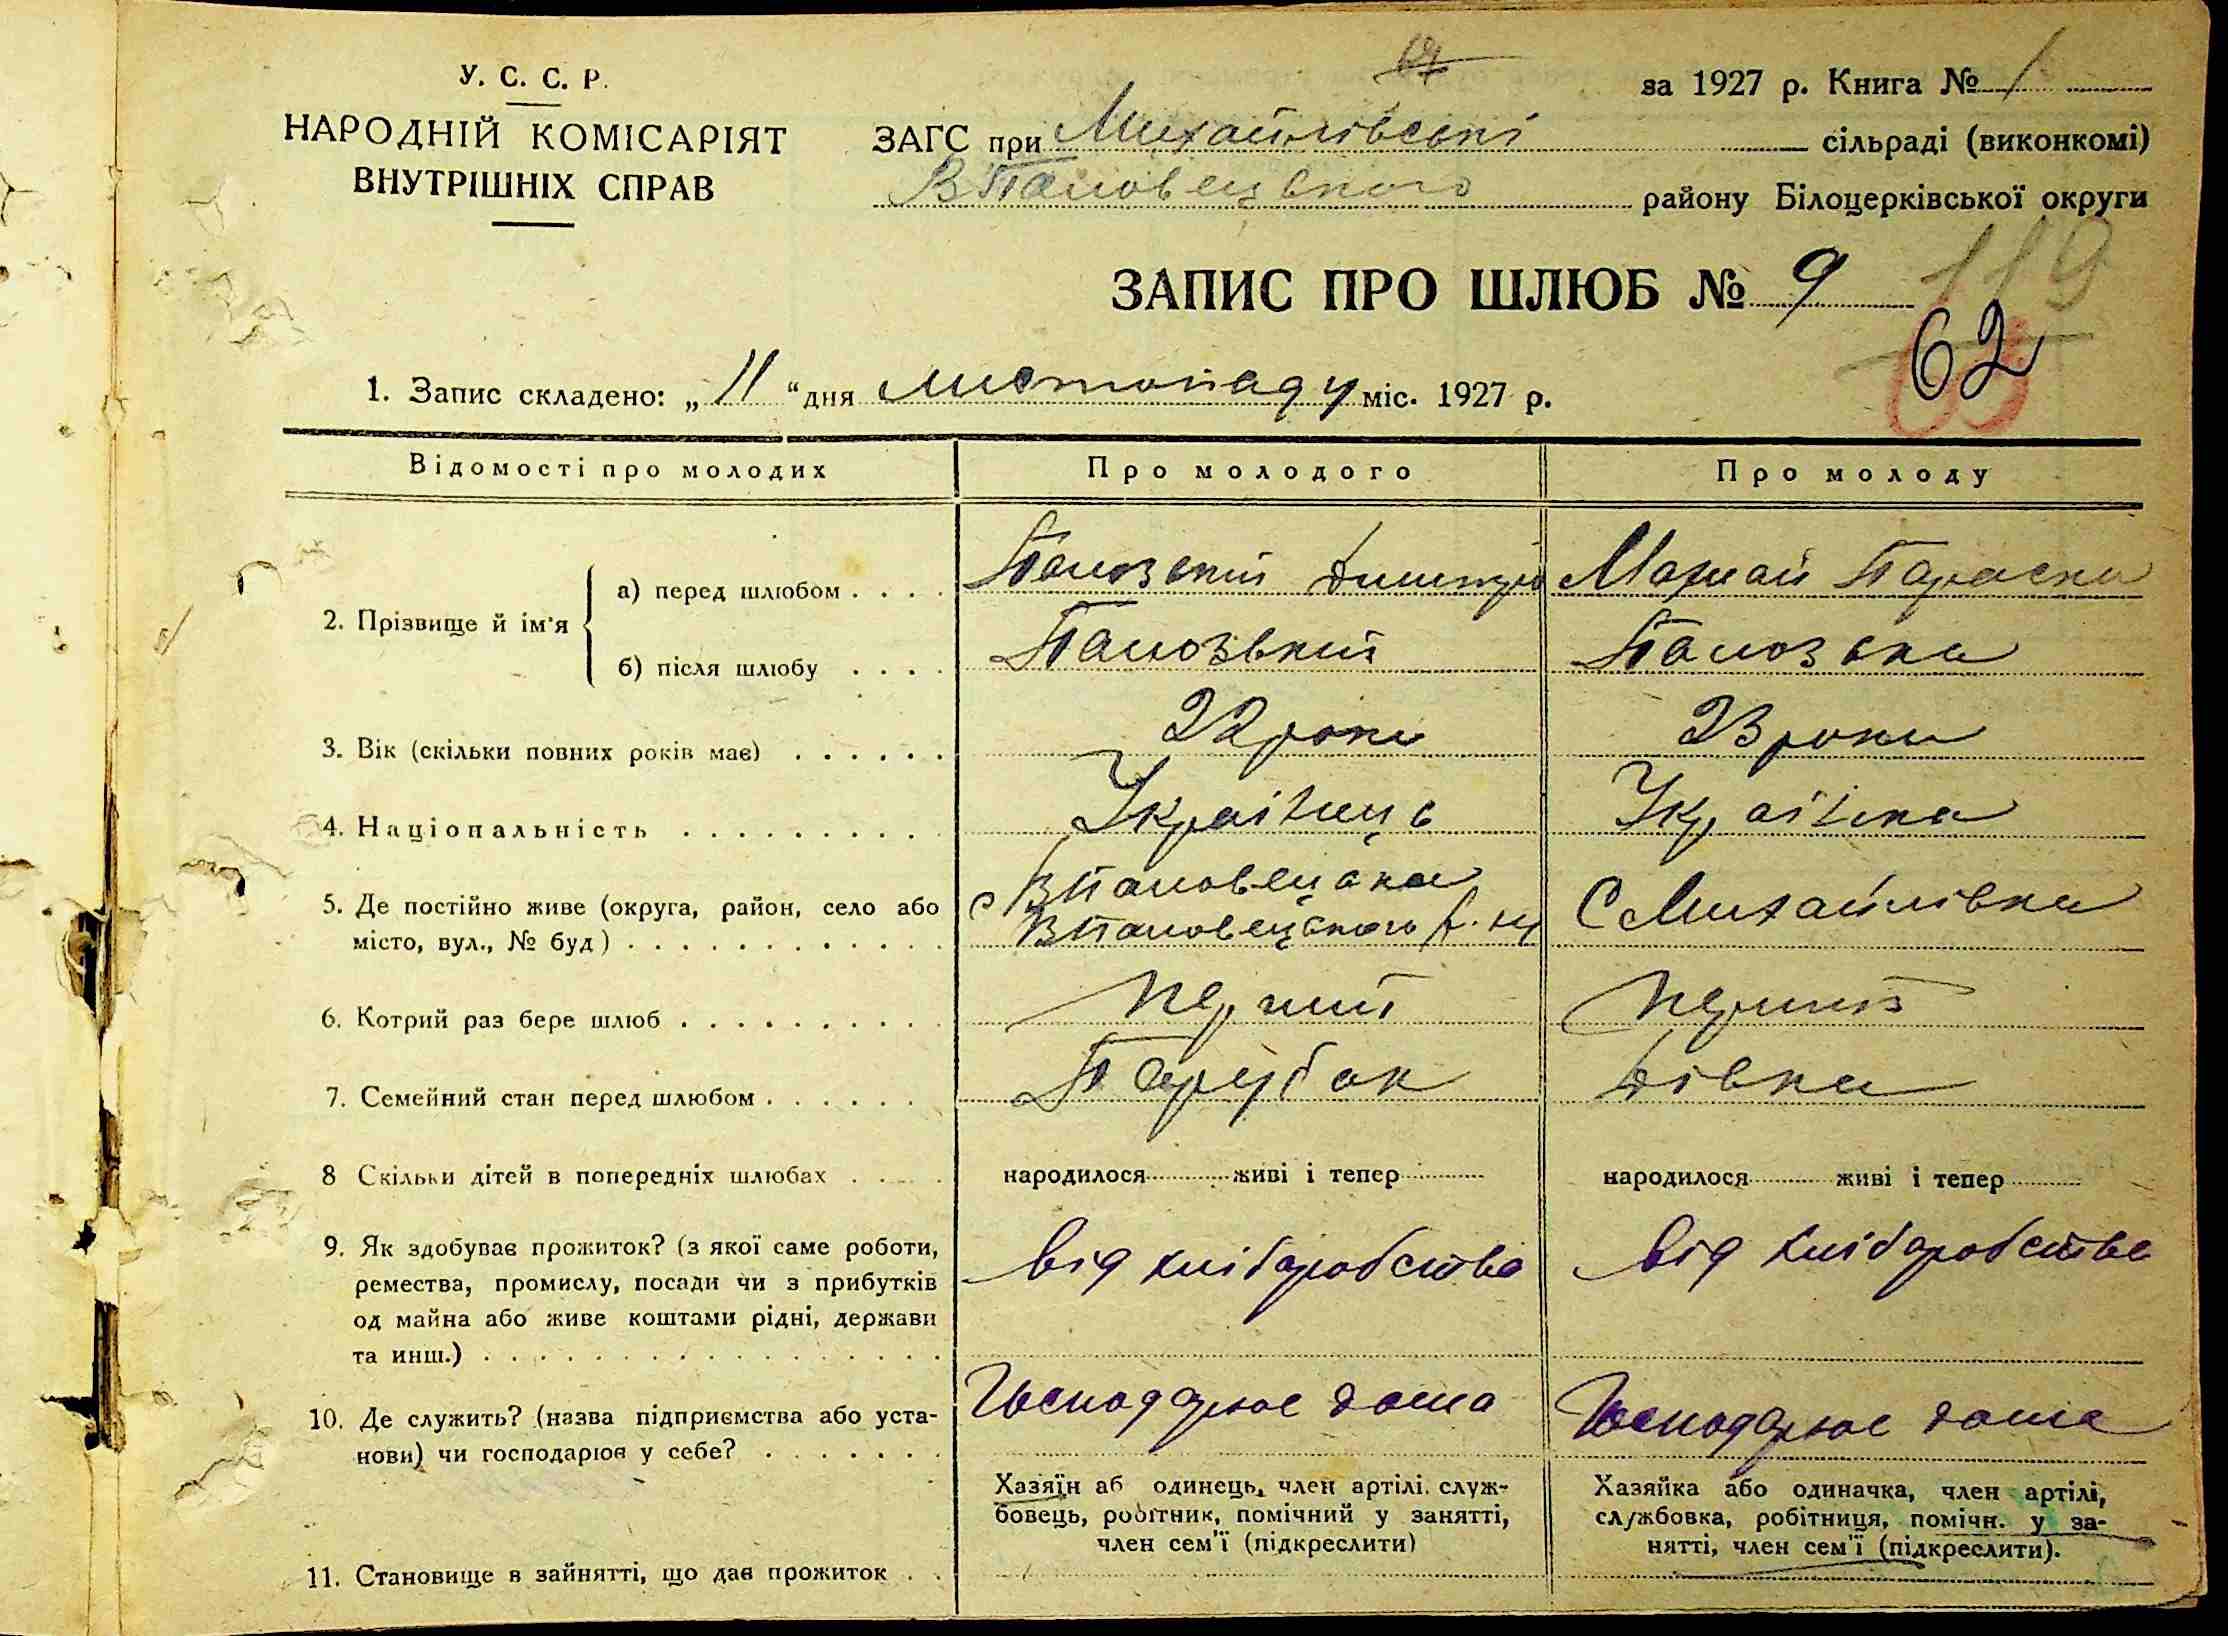 67
У. С. С. Р.
за 1927 р. Книга № 1
НАРОДНІЙ КОМІСАРІЯТ
ВНУТРІШНІХ СПРАВ
ЗАГС при Михайлівські сільраді (виконкомі)
В Половецького району Білоцерківської округи
ЗАПИС ПРО ШЛЮБ № 9
119
62
1. Запис складено: „ 11 “ дня листопаду міс. 1927 р.
Відомості про молодих Про молодого Про молоду
2. Прізвище й ім'я
а) перед шлюбом . . . . Дмитро Параска
б) після шлюбу . . . .
3. Вік (скільки повних років має) . . . . . . 22 роки 23 роки
4. Національність . . . . . . . . . Українець Українка
5. Де постійно живе (округа, район, село або
місто, вул., № буд) . . . . . . . . . . . . с В Половецька
В Половецького р. ну С Михайлівка
6. Котрий раз бере шлюб . . . . . . . . . . перший перший
7. Семейний стан перед шлюбом . . . . . . Парубок Дівка
8 Скільки дітей в попередніх шлюбах . . . . народилося живі і тепер народилося живі і тепер
9. Як здобуває прожиток? (з якої саме роботи,
ремества, промислу, посади чи з прибутків
од майна або живе коштами рідні, держави
та инш.) . . . . . . . . . . . . . . . . . від хліборобства від хліборобства
10. Де служить? (назва підприємства або уста-
нови) чи господарює у себе? . . . . . . . Господарює дома Господарює дома
11. Становище в зайнятті, що дає прожиток . .
Хазяїн аб одинець, член артілі, служ-
бовець, робітник, помічний у занятті,
член сем'ї (підкреслити)
Хазяйка або одиначка, член артілі,
службовка, робітниця, помічн. у за-
нятті, член сем'ї (підкреслити).